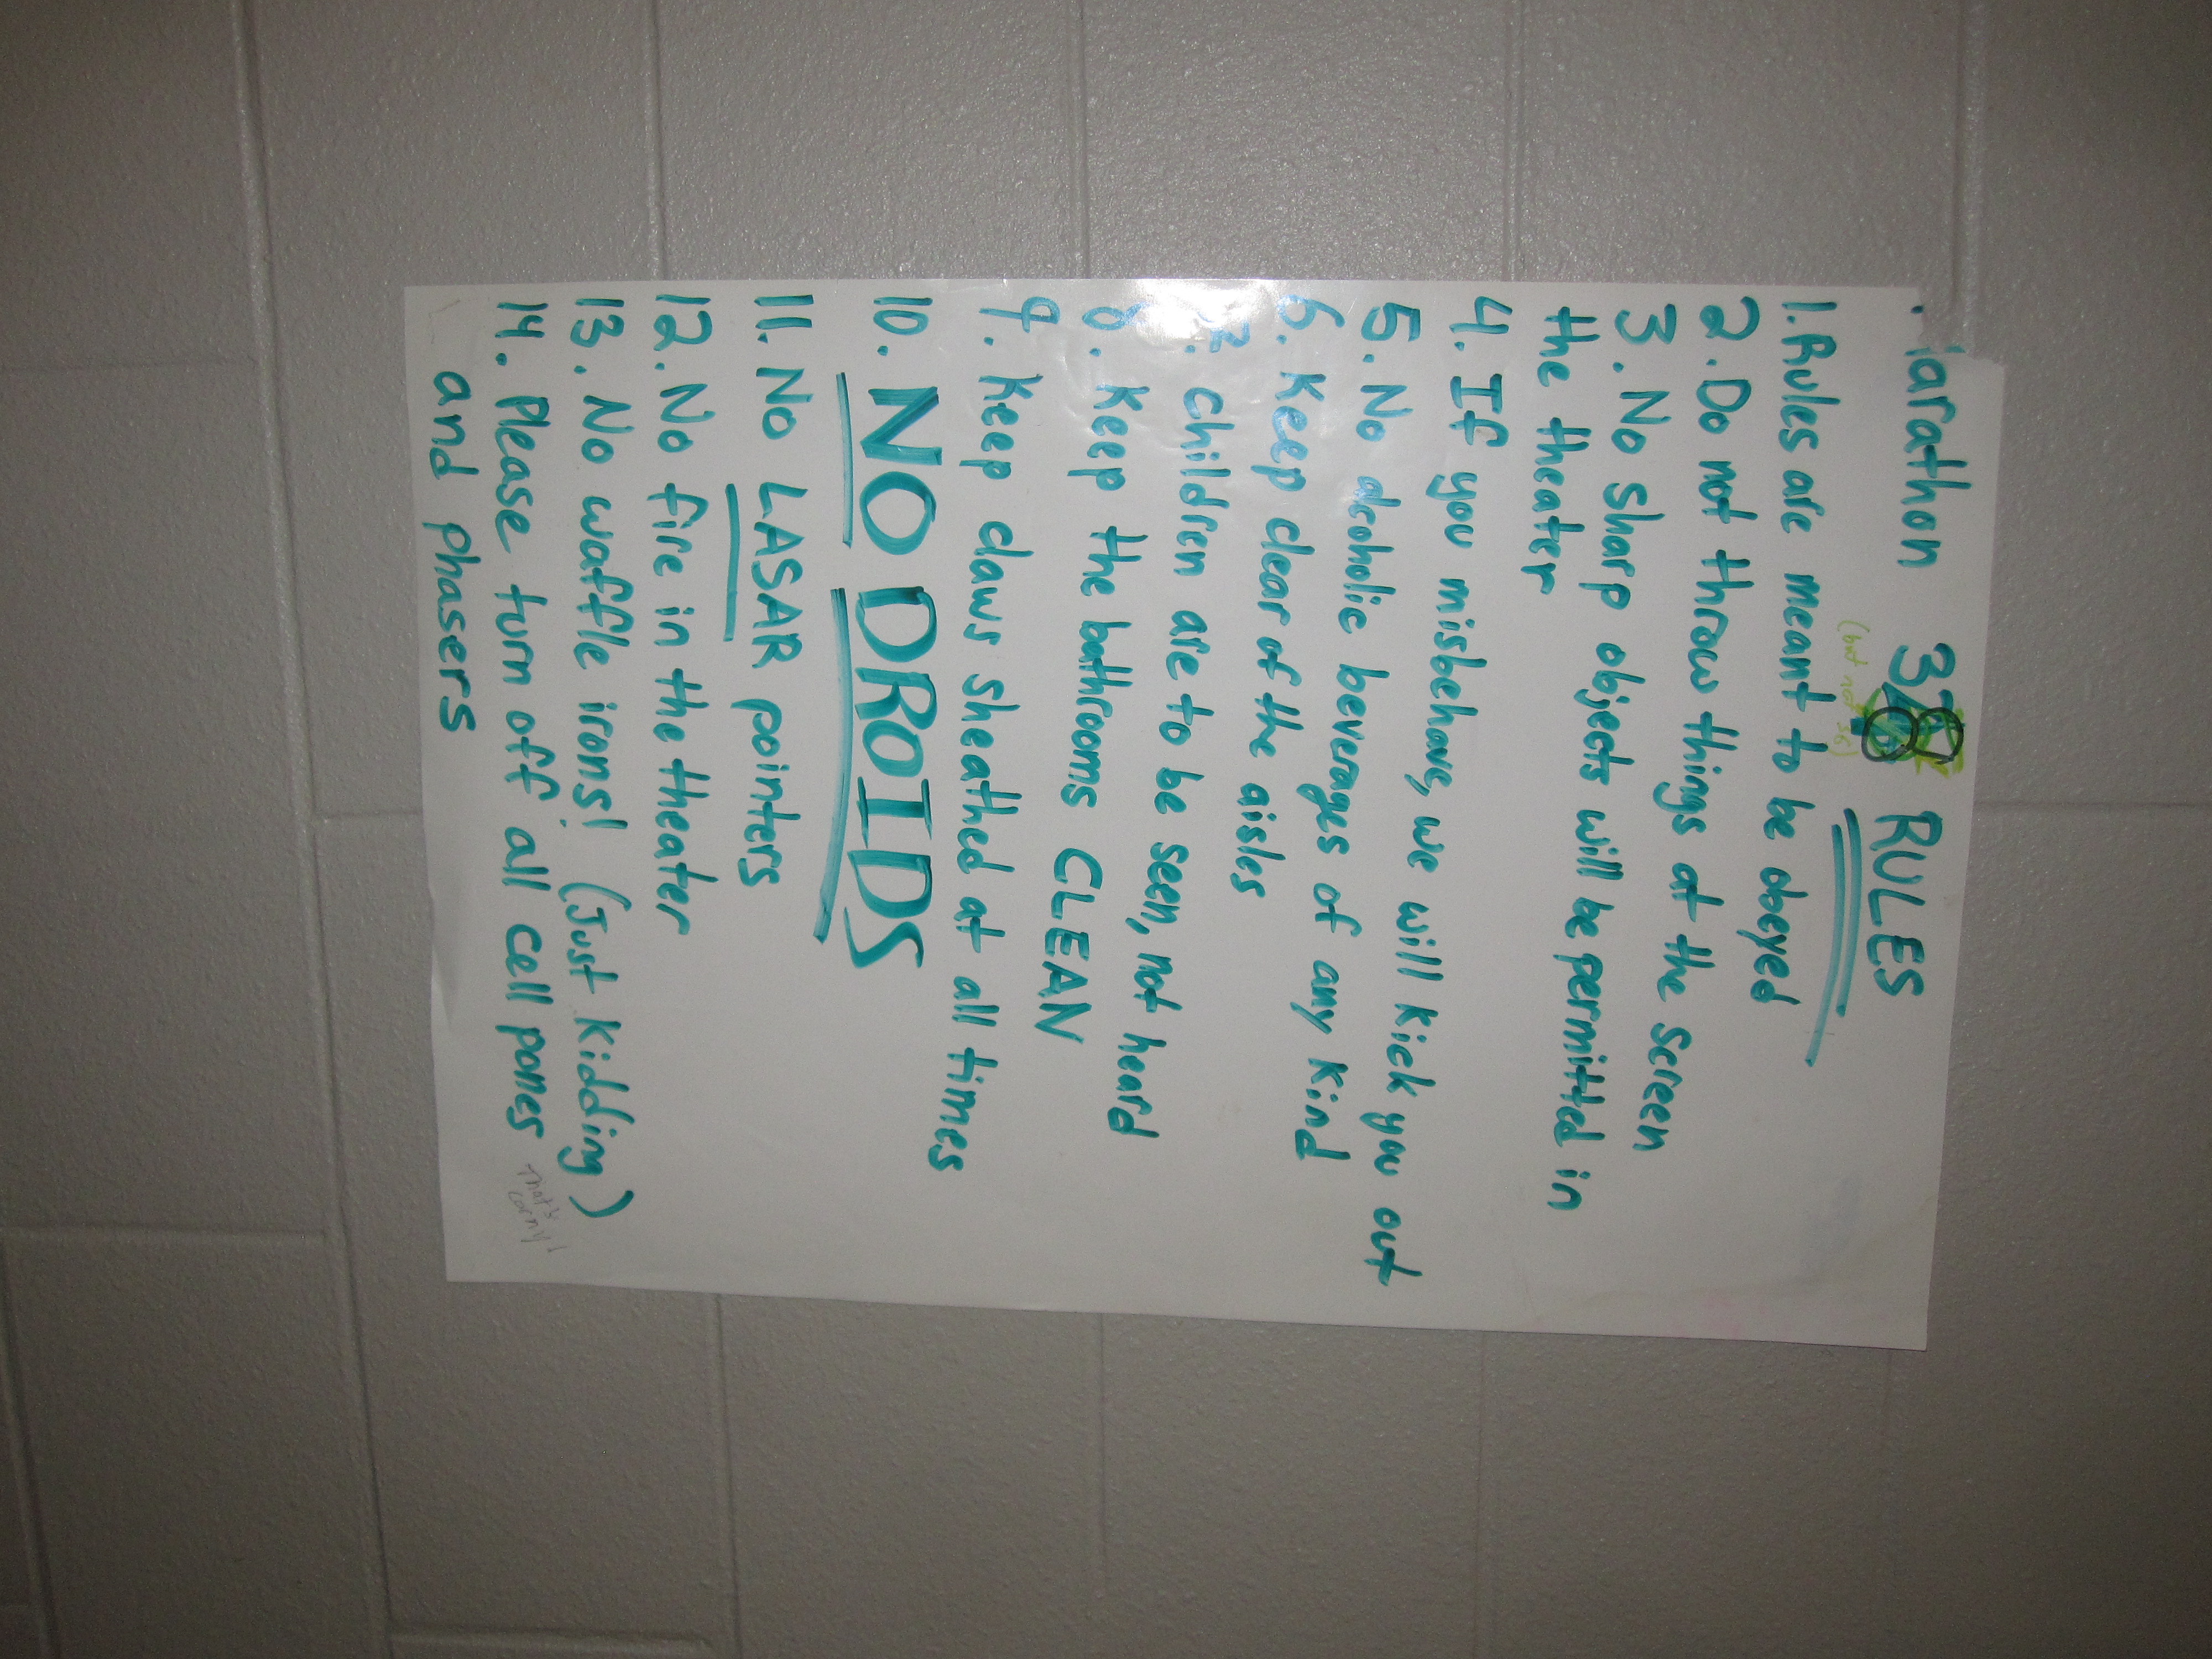 arathon 38 RULES
(but not 36)
1. Rules are meant to be obeyed
2. Do not throw things at the screen
3. No sharp objects will be permitted in
the theater
4. If you misbehave, we will kick you out
5. No alcoholic beverages of any kind
6. Keep clear of the aisles
7. Children are to be seen, not heard
8. Keep the bathrooms CLEAN
9. Keep claws sheathed at all times
10. NO DROIDS
11. No LASAR pointers
12. No fire in the theater
13. No waffle irons! (Just Kidding)
14. Please turn off all cell pones
and phasers
That's
corny!